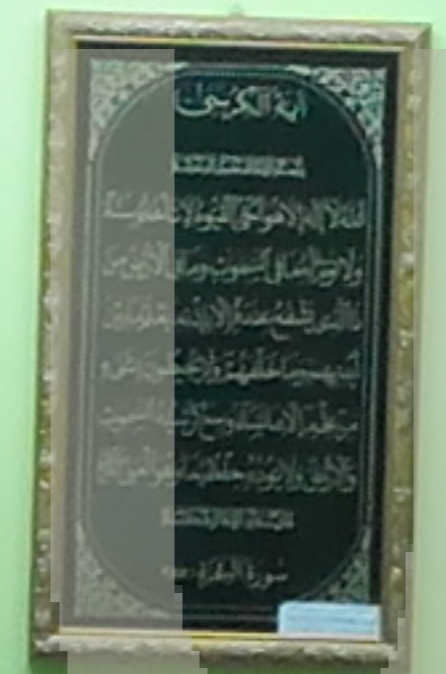 آية الكرسي
الله لا إله إلا هو الحي القيوم لا تأخذه سنة
ولا نوم له ما في السموت وما في الأرض من
ذا الذي يشفع عنده إلا بإذنه يعلم ما بين
أيديهم وما خلفهم ولا يحيطون بشيء
من علمه إلا بما شاء وسع كرسيه السموت
والأرض ولا يوده حفظهما وهو العلي العظيم
سورة البقرة